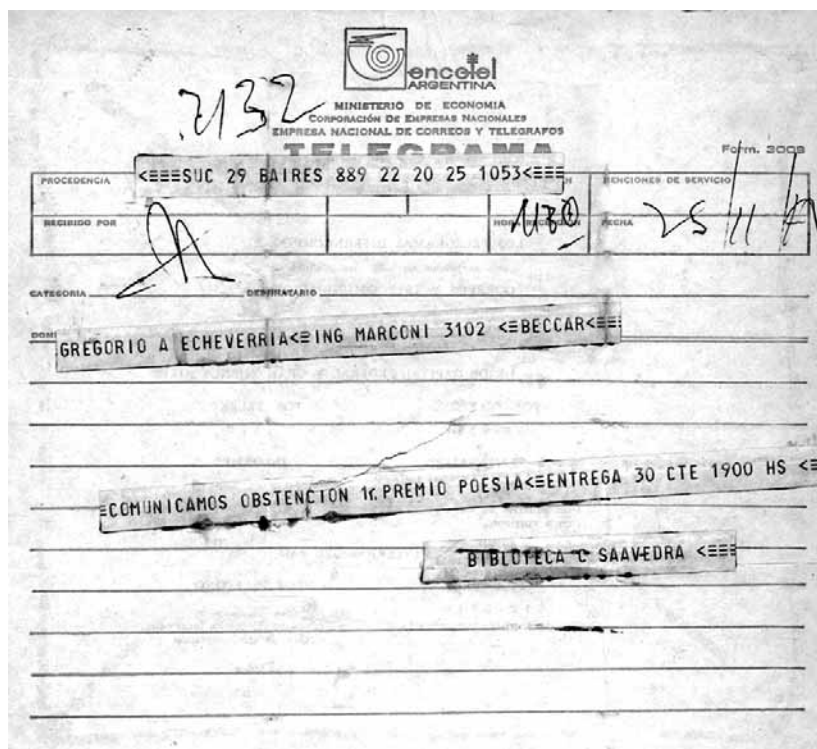 encotel
ARGENTINA
2132
MINISTERIO DE ECONOMIA
CORPORACIÓN DE EMPRESAS NACIONALES
EMPRESA NACIONAL DE CORREOS Y TELEGRAFOS
TELEGRAMA
Form. 3008
PROCEDENCIA
<≡≡≡SUC 29 BAIRES 889 22 20 25 1053<≡≡≡
MENCIONES DE SERVICIO
RECIBIDO POR
HORA RECEPCIÓN
FECHA
25/11/
CATEGORIA
DESTINATARIO
GREGORIO A ECHEVERRIA<≡ING MARCONI 3102 <≡BECCAR<≡≡≡
≡COMUNICAMOS OBSTENCION 1r. PREMIO POESIA<≡ENTREGA 30 CTE 1900 HS <≡
BIBLOTECA C SAAVEDRA <≡≡≡